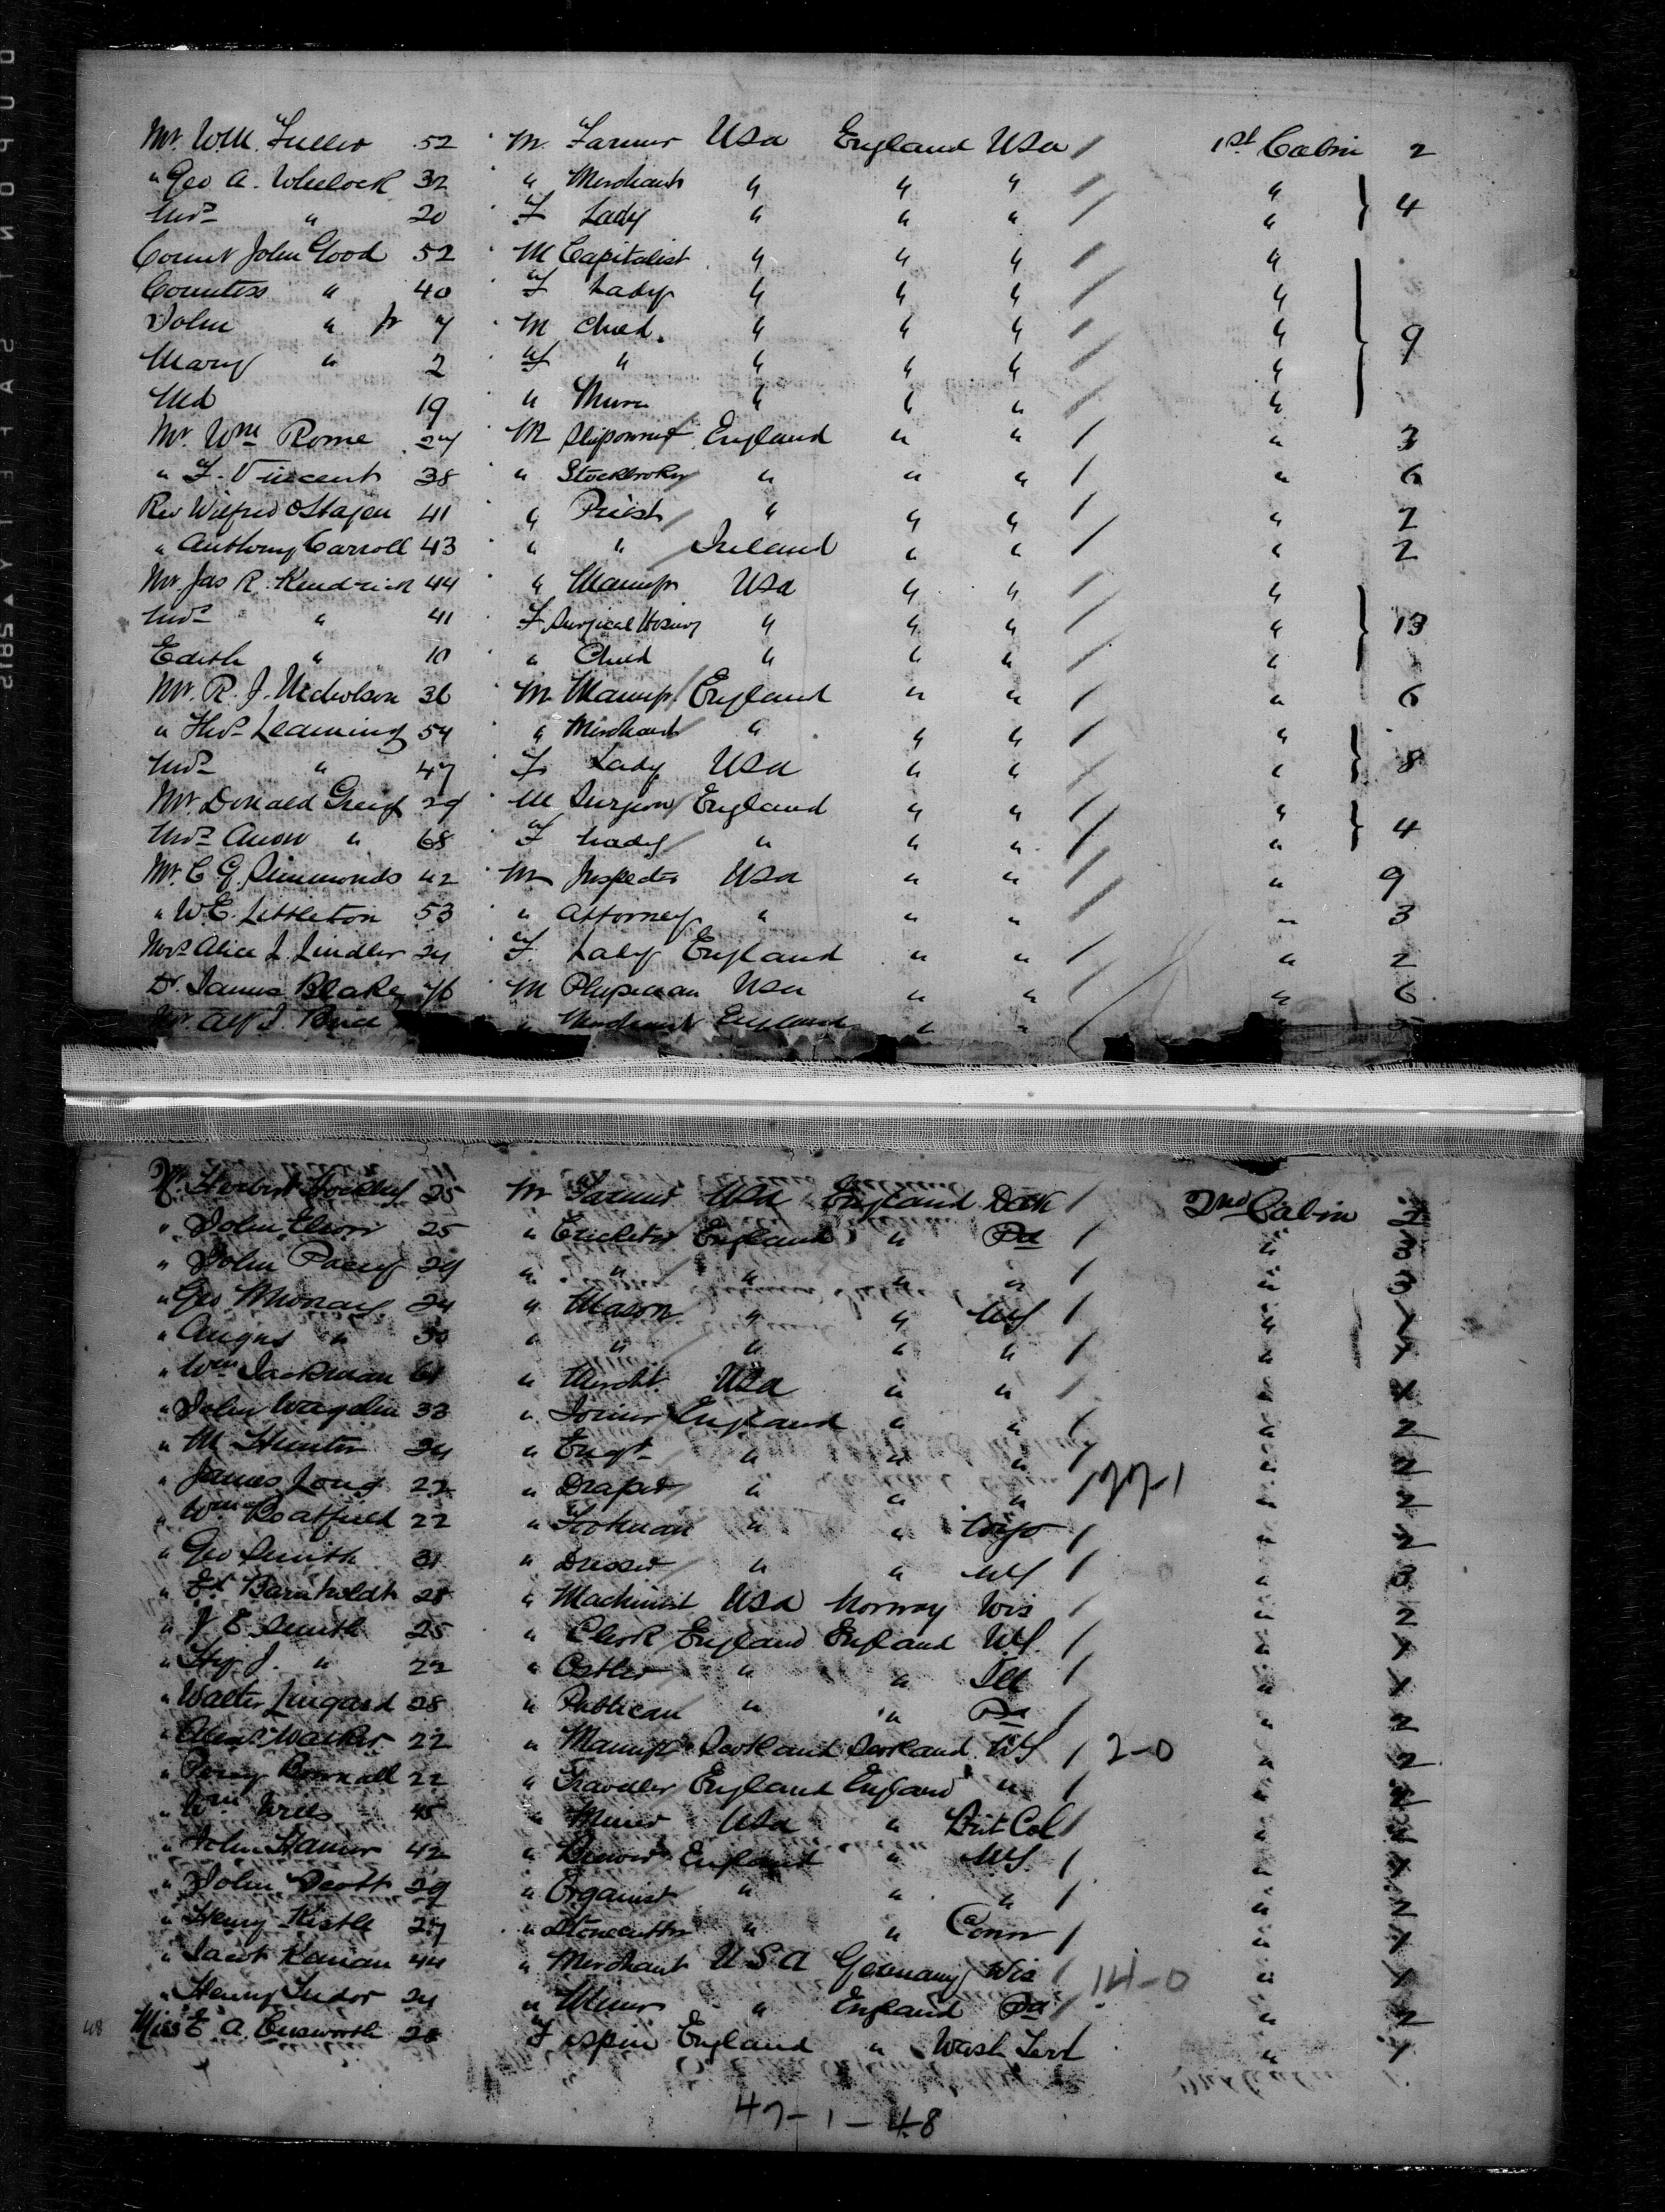 Mr. W.M. Fuller 52 M. Farmer USA England USA / 1st Cabin 2
" Geo A. Wheelock 32 " Merchant " " " / " 4
Mrs " 20 F Lady " " " / "
Count John Good 52 M Capitalist " " " / "
Countess " 40 F Lady " " " / "
John " Jr 7 M Child " " " / " 9
Mary " 2 F " " " " / "
19 " " " " / "
Mr. Wm Rome 27 M Shipowner England " " / " 3
" F. Vincent 38 " Stockbroker " " " / " 6
Rev Wilfred 41 " Priest " " " / " 2
" Anthony Carroll 43 " " Ireland " " / " 2
Mr. Jas R. Kendrick 44 " Manufr USA " " / "
Mrs " 41 F Surgical Hosiery " " " / " 13
Edith " 10 " Child " " " / "
Mr. R. J. Nicholson 36 M Manufr England " " / " 6
" Thos Leaming 54 " Merchant " " " / "
Mrs " 47 F Lady USA " " / " 8
Mr. Donald Greig 29 M Surgeon England " " / "
Mrs " 68 F Lady " " " / " 4
Mr. C. G. Simmonds 42 M Inspector USA " " / " 9
" W.E. Littleton 53 " Attorney " " " / " 3
Mrs Alice J. 24 F. Lady England " " / " 2
Dr. James Blake 76 M Physician USA " " / " 6
Mr. Alf J. " Merchant England " " /
Mr Herbert 25 M Farmer USA England Dak / 2nd Cabin 2
" John 25 " Cricketer England " Pa / " 3
" John 29 " " " " " / " 3
" Geo Murray 24 " Mason " " NY / " 1
" Angus " 30 " " " " " / " 1
" Wm Jackman 61 " Mercht. USA " " / " 1
" John 33 " Joiner England " " / " 2
" M Hunter 24 " Engr " " " / " 2
" James Long 22 " Draper " " " / 27-1 " 2
" Wm Boatfield 22 " Footman " " / " 2
" Geo Smith 31 " Dresser " " NY / " 3
" Ed. Barnholdt 28 " Machinist USA Norway Wis / " 2
" J E Smith 25 " Clerk England England NY. / " 1
" Hy J. " 22 " Ostler " " Ill / " 1
" Walter Lingard 28 " Publican " " Pa / " 2
" Alexr Walker 22 " Manufr Scotland Scotland NY / 2-0 " 2
" Percy 22 " Traveller England England " / " 2
" Wm 45 " Miner USA " Brit Col / "
" John 42 " England " NY. / " 1
" John Scott 29 " Organist " " " / " 2
" Henry Kistle 27 " Stonecutter " " Conn / " 1
" Jacob 44 " Merchant USA Germany Wis / 14-0 " 1
" Henry Tudor 24 " Miner " England Pa / " 2
48 Miss E. A. 28 F Spin England " Wash Terr " 1
47-1-48